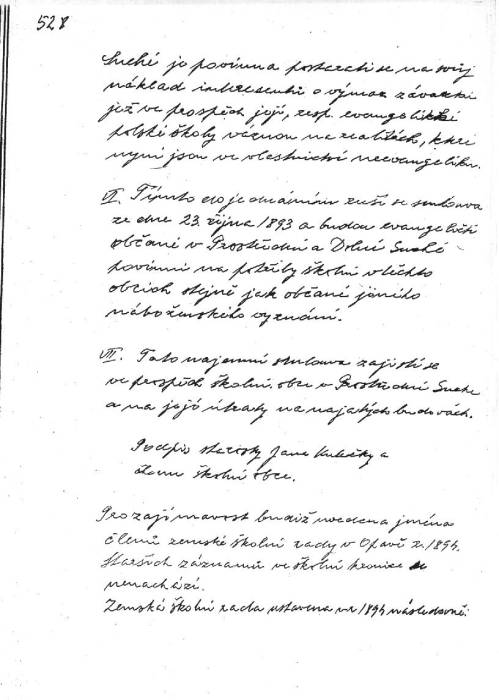 528
Suché je povinna postarati se na svůj
náklad o výmaz závazků
jež ve prospěch její, resp. evangelické
polské školy váznou na realitách, které
nyní jsou ve vlastnictví neevangelíků.
VI. Tímto dojednáním ruší se smlouva
ze dne 23. října 1893 a budou evangeličtí
občané v Prostřední a Dolní Suché
povinni na potřeby školní v těchto
obcích stejně jak občané jiného
náboženského vyznání.
VII. Tato nájemní smlouva zajistí se
ve prospěch školní obce v Prostřední Suché
a na její útraty na najatých budovách.
Podpis starosty Jana Kubečky a
členů školní obce.
Pro zajímavost budiž uvedena jména
členů zemské školní rady v Opavě r. 1894.
Starších záznamů ve školní kronice se
nenachází.
Zemská školní rada ustavena v r. 1894 následovně: